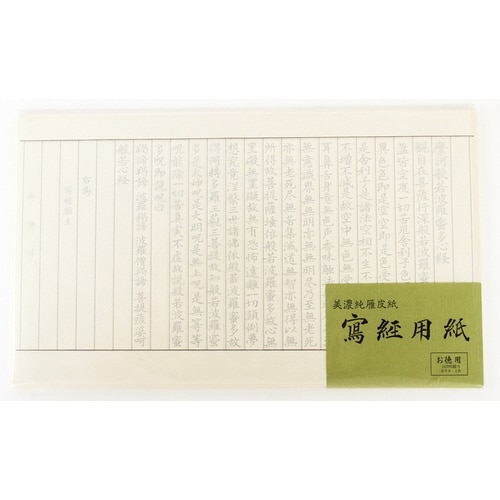 摩訶般若波羅蜜多心経
觀自在菩薩行深般若波羅
蘊皆空度一切苦厄舍利子
異色色即是空空即是色
是舍利子是諸法空相不生
不増不減是故空中無色無
耳鼻舌身意無色聲香味觸法
無意識界無無明亦無無明盡乃至無老死
亦無老死盡無苦集滅道無智亦無得以無
所得故菩提薩埵依般若波羅蜜多故心無
罣礙無罣礙故無有恐怖遠離一切顛倒夢
想究竟涅槃三世諸佛依般若波羅蜜多故
得阿耨多羅三藐三菩提故知般若波羅蜜
多是大神呪是大明呪是無上呪是無等等
呪能除一切苦真實不虚故説般若波羅蜜
多呪即説呪曰
羯諦羯諦 波羅羯諦 波羅僧羯諦 菩提薩婆訶
般若心経
為
美濃純雁皮紙
寫経用紙
お徳用